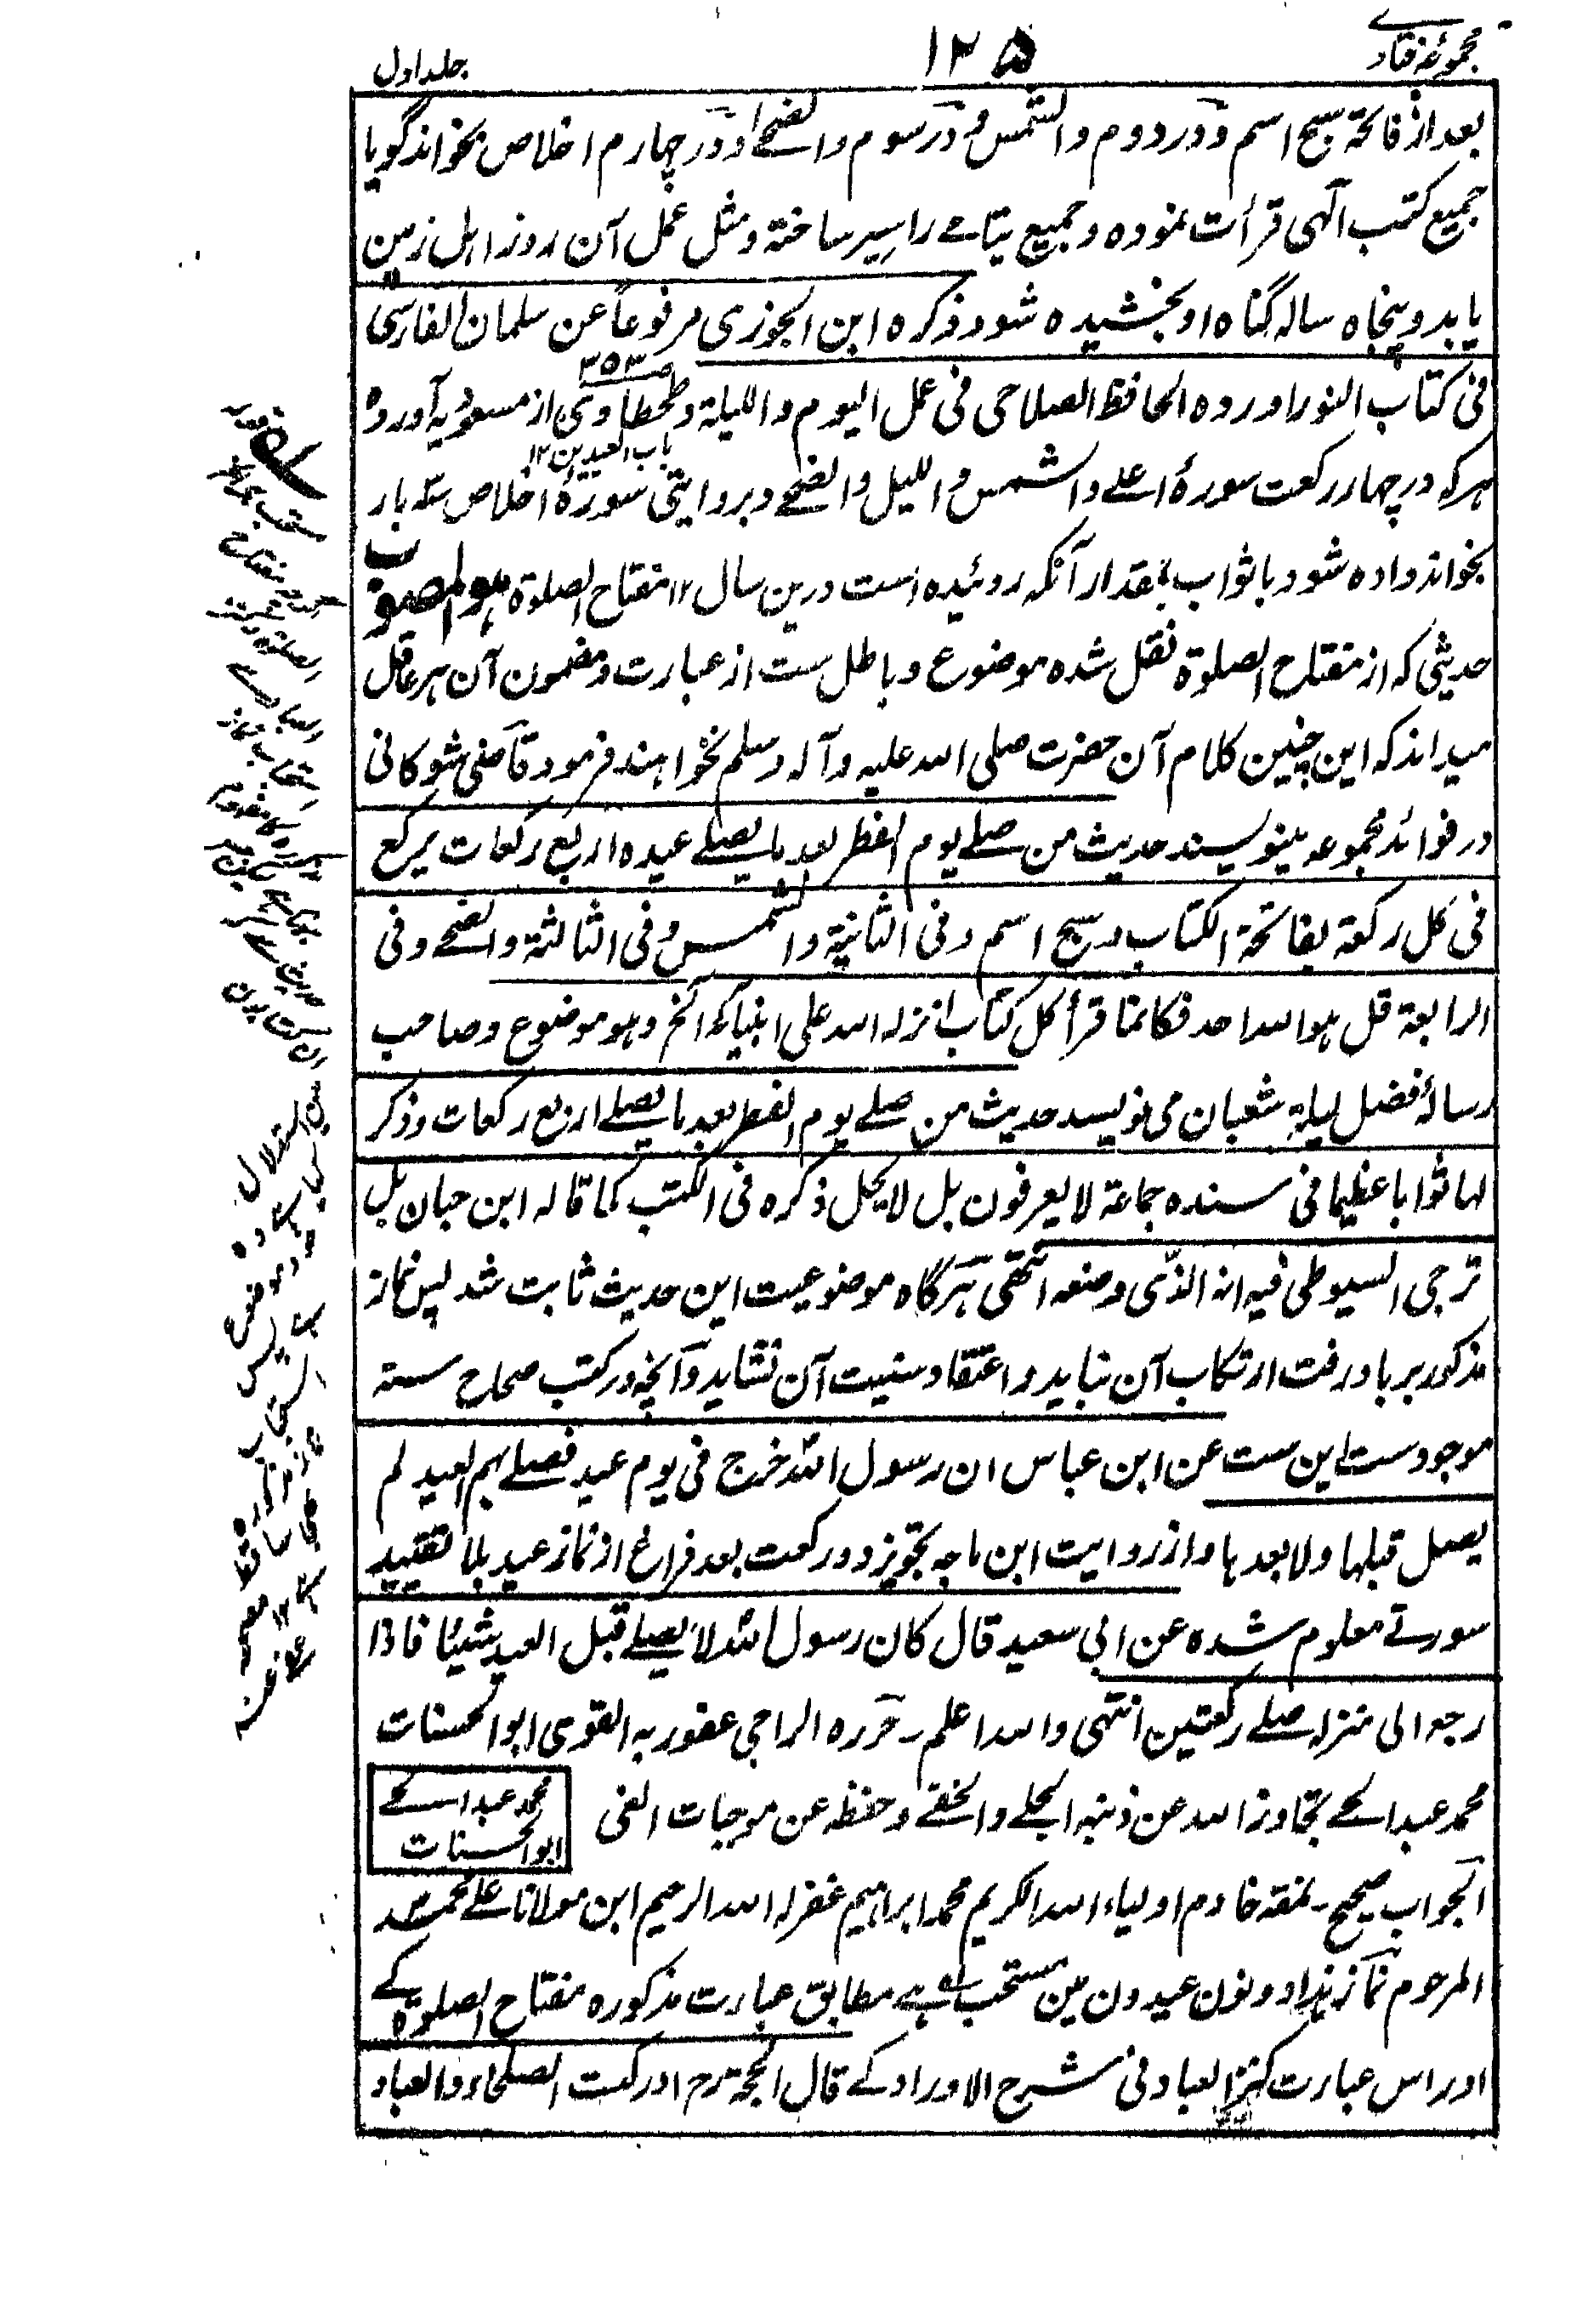 مجموعۂ فتاوے
۱۲۵
جلد اول
بعد از فاتحۃ سبح اسم و در دوم والشمس و در سوم والضحےٰ و در چہارم اخلاص بخواند گویا
جمیع کتب الٰہی قرأت نمودہ و جمیع یتامے را سیر ساختہ و مثل عمل آن روز اہل زمین
یابد و پنجاہ سالہ گناہ او بخشیدہ شود ذکرہ ابن الجوزی مرفوعاً عن سلمان الفارسی
فی کتاب النور اوردہ الحافظ الصلاحی فی عمل الیوم واللیلۃ و طحطاوی از مسعودیہ آوردہ
ص ۳۵۳
باب العیدین ۱۲
ہر کہ در چہار رکعت سورۂ اعلے والشمس واللیل والضحے و بروایتی سورۂ اخلاص سہ بار
بخواند دادہ شود با ثواب بمقدار آنکہ روئیدہ است درین سال ۱۲ مفتاح الصلوۃ ہو المصوب
حدیثی کہ از مفتاح الصلوۃ نقل شدہ موضوع و باطل ست از عبارت و مضمون آن ہر عاقل
میداند کہ این چنین کلام آن حضرت صلی اللہ علیہ وآلہ وسلم نخواہند فرمود قاضی شوکانی
در فوائد مجموعہ مینویسند حدیث من صلے یوم الفطر بعد ما یصلے عیدہ اربع رکعات یرکع
فی کل رکعۃ بفاتحۃ الکتاب و سبح اسم وفی الثانیۃ والشمس وفی الثالثۃ والضحے وفی
الرابعۃ قل ہو اللہ احد فکانما قرأ کل کتاب انزلہ اللہ علی انبیائہ الخ وہو موضوع و صاحب
رسالۂ فضل لیلۃ شعبان می نویسد حدیث من صلے یوم الفطر بعد ما یصلے اربع رکعات وذکر
لہا ثوابا عظیما فی سندہ جماعۃ لا یعرفون بل لا یحل ذکرہ فی الکتب کما قالہ ابن حبان بل
ترجی السیوطی فیہ انہ الذی وضعہ انتھی ہرگاہ موضوعیت این حدیث ثابت شد پس نماز
مذکور بر باد رفت ارتکاب آن نباید و اعتقاد سنیت آن نشاید و آنچہ در کتب صحاح ستہ
موجود ست این ست عن ابن عباس ان رسول اللہ خرج فی یوم عید فصلے بہم العید لم
یصل قبلہا ولا بعدہا و از روایت ابن ماجہ تجویز دو رکعت بعد فراغ از نماز عید بلا تقیید
سورتے معلوم شدہ عن ابی سعید قال کان رسول اللہ لا یصلے قبل العید شیئا فاذا
رجع الی منزلہ صلے رکعتین انتھی واللہ اعلم حررہ الراجی عفو ربہ القوی ابو الحسنات
محمد عبد الحے تجاوز اللہ عن ذنبہ الجلے والخفے وحفظہ عن موجبات الغی
محمد عبد الحے
ابو الحسنات
الجواب صحیح نمقہ خادم اولیاء اللہ الکریم محمد ابراہیم غفر لہ اللہ الرحیم ابن مولانا علے محمد
المرحوم نماز ہذا دونون عیدون مین مستحب ہے مطابق عبارت مذکورہ مفتاح الصلوۃ کے
اور اس عبارت کنز العباد فی شرح الاوراد کے قال الحجۃ رح ادرکت الصلحاء والعباد